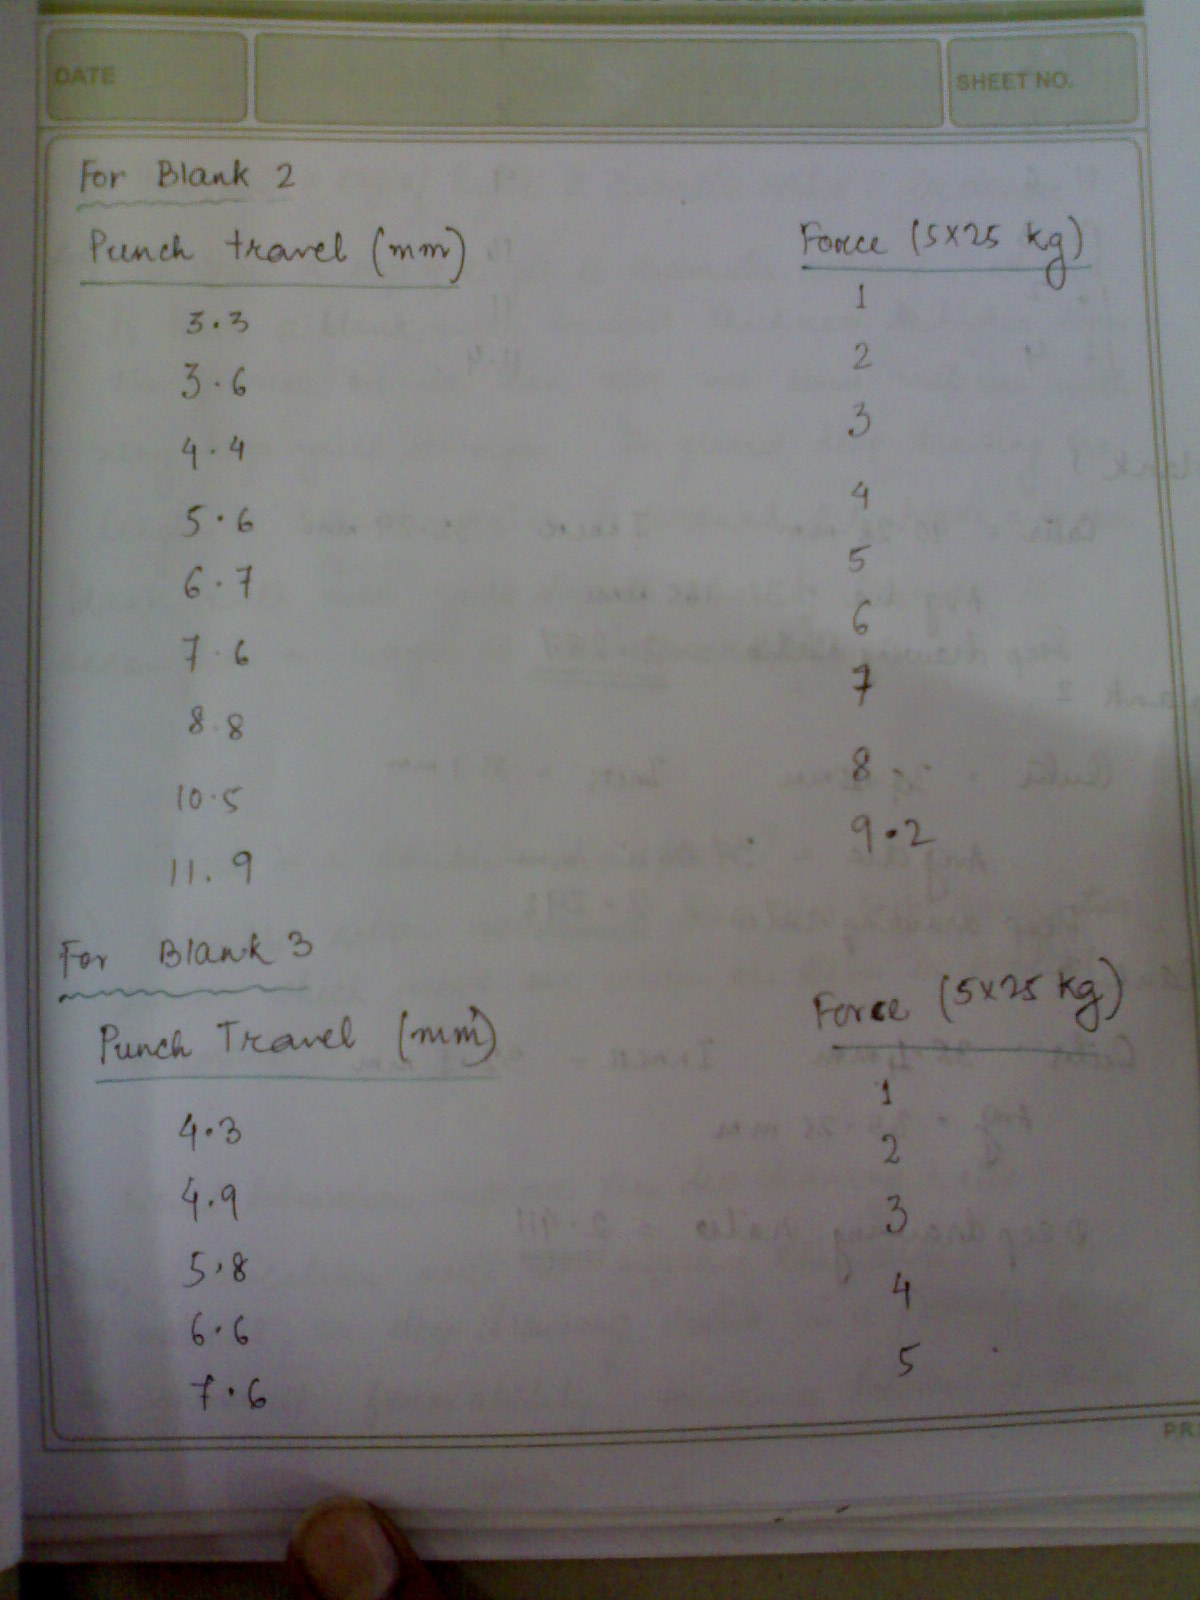 DATE
SHEET NO.
For Blank 2
Punch travel (mm) Force (5x25 kg)
3.3 1
3.6 2
4.4 3
5.6 4
6.7 5
7.6 6
8.8 7
10.5 8
11.9 9.2
For Blank 3
Punch Travel (mm) Force (5x25 kg)
4.3 1
4.9 2
5.8 3
6.6 4
7.6 5